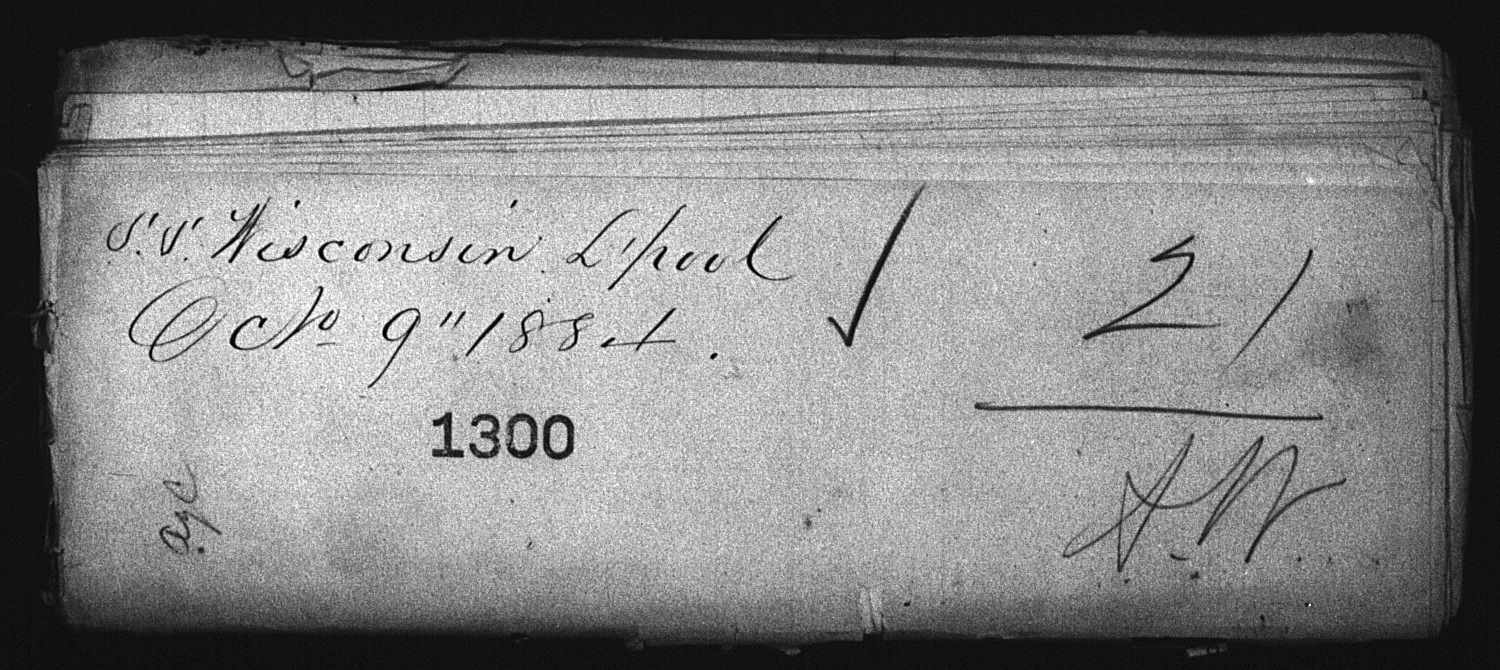 S.S. Wisconsin L'pool
Octo 9" 1884.
1300
21
A.W.
agc